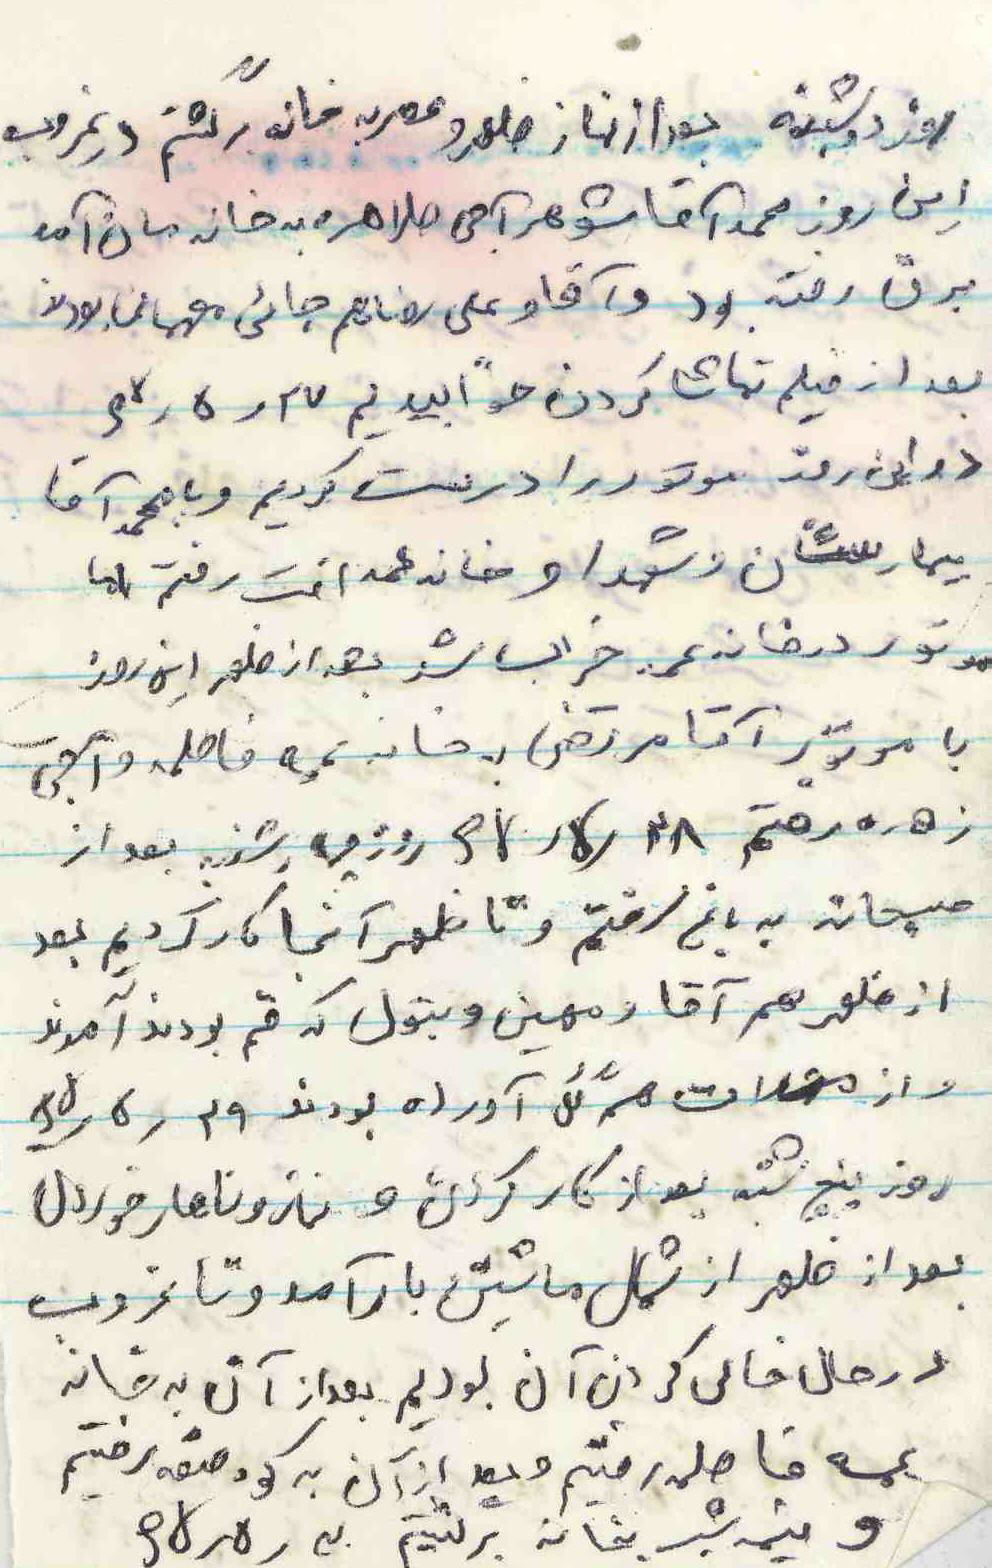 روز دوشنبه بعد از نماز ظهر و عصر به خانه برگشتم در غروب
این روز محمد آقا شوهر آجی طاهره به خانه مان آمد
برق رفته بود و آقا و علی رضا هم جائی مهمان بودند
بعد از فیلم تماشا کردن خوابیدیم ۲۷ ر ۶ ر
در این روز موتور را درست کردیم و با محمد آقا
بیمارستان شهدا و خانه عمه رفتم اما
موتور در خانه عمه خراب شد بعد از ظهر این روز
با موتور آقا مرتضی به خانه عمه فاطمه و آجی
زهره رفتم ۲۸ ر ۶ ر روز چهارشنبه بعد از
صبحانه به باغ رفتم و تا ظهر آنجا کار کردیم بعد
از ظهر هم آقا و مهین و بتول که قم بودند آمدند
و از آورده بودند ۲۹ ر ۶ ر
روز پنج شنبه بعد از کار کردن و نماز و ناهار خوردن
بعد از ظهر از شمال ماشین بار آمد و تا غروب
در حال خالی کردن آن بودیم بعد از آن به خانه
عمه فاطمه رفتیم و بعد از آن به کوه صفه رفتیم
و نیمه شب بخانه برگشتیم